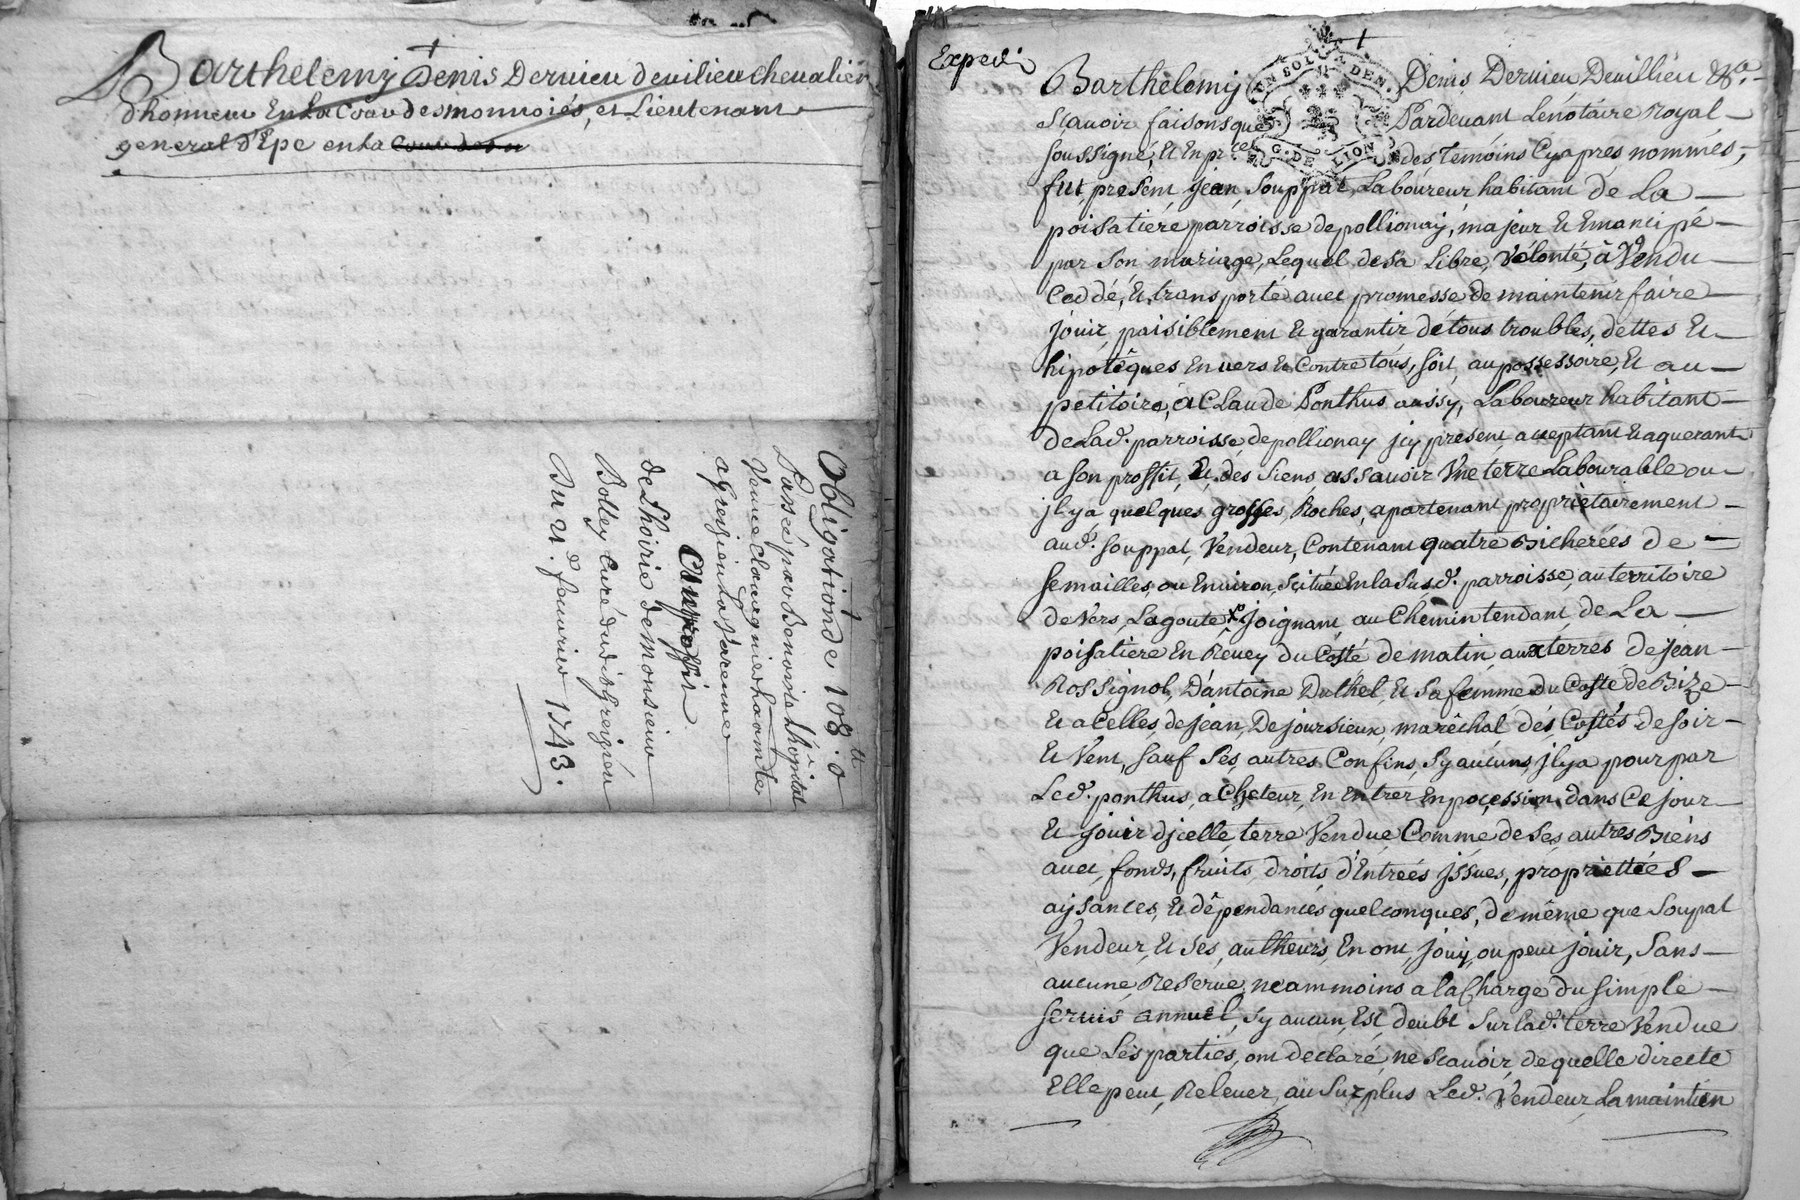 Barthelemy Denis Dervieu devilieu chevalier
dhonneur En la Cour des monnoiés, et Lieutenant
general d'Epe en la Cour des m
Obligation de 108.ll 0
Passée par Benoiste Lhopital
veuve Claude
a Greysieu la Varenne
Au proffit
de L'hoirie de Monsieur
Bolley Curé dudit Greigieu
Du 21.e fevrier 1743.
Expedié
Barthélemy Denis Dervieu Devillieu &ca.
Scavoir faisons que Pardevant Le notaire Royal
soussigné, Et En pr.ce des Temoins Cy apres nommés,
fut, present jean Souppat, Laboureur habitant de La
poisatiere parroisse de pollionay, majeur Et Emancipé
par son mariage, Lequel de sa Libre, Volonté, à Vendu
Ceddé, Et, transporté avec promesse de maintenir faire
jouir, paisiblement Et garantir dé tous troublés, dettes Et
hipotêques Envers Et Contre tous, soit, au possessoire, Et au
petitoire, à Claude Ponthus aussy, Laboureur habitant
de Lad. parroisse, de pollionay jcy present acceptant Et aquerant
a son proffit, Et, des siens, assavoir Vne terre Labourable ou
jl y a quelques grosses, Roches, apartenant proprietairement
aud. Souppat, Vendeur, Contenant quatre Bicherées de
semailles, ou Environ, Scituée En la Susd. parroisse, au territoire
de Vers, Lagoute Joignant au Chemin tendant, de La
poisatiere En Rêvey du Costé de matin, aux terres de jean
Rossignol, D'antoine Duthel, Et Sa femme du Costé de Bize
Et a Celles, de jean, De joursieux, maréchal dés Costés de soir
Et Vent, sauf Sés, autres Confins, sy aucuns, jl y a pour par
Led. ponthus, acheteur, En Entrer En pocession, dans Ce jour
Et jouir djcelle, terre Vendue, Comme de Sés autres Biéns
avec, fonds, fruits, droits, d'Entreés jssues, propriettées
aysances, Et dêpendances quelconques, de même que Soupat
Vendeur, Et Sés, autheurs, En ont, jouy, ou peut jouir, Sans
aucune, Reserve, neammoins a la Charge du simple
servis annuel, sy aucun, Est deubt Sur Lad. terre Vendue
que Lés parties, ont declaré, ne scavoir, de quelle directe
Elle peut, Relever, au Surplus Led. Vendeur, La maintien